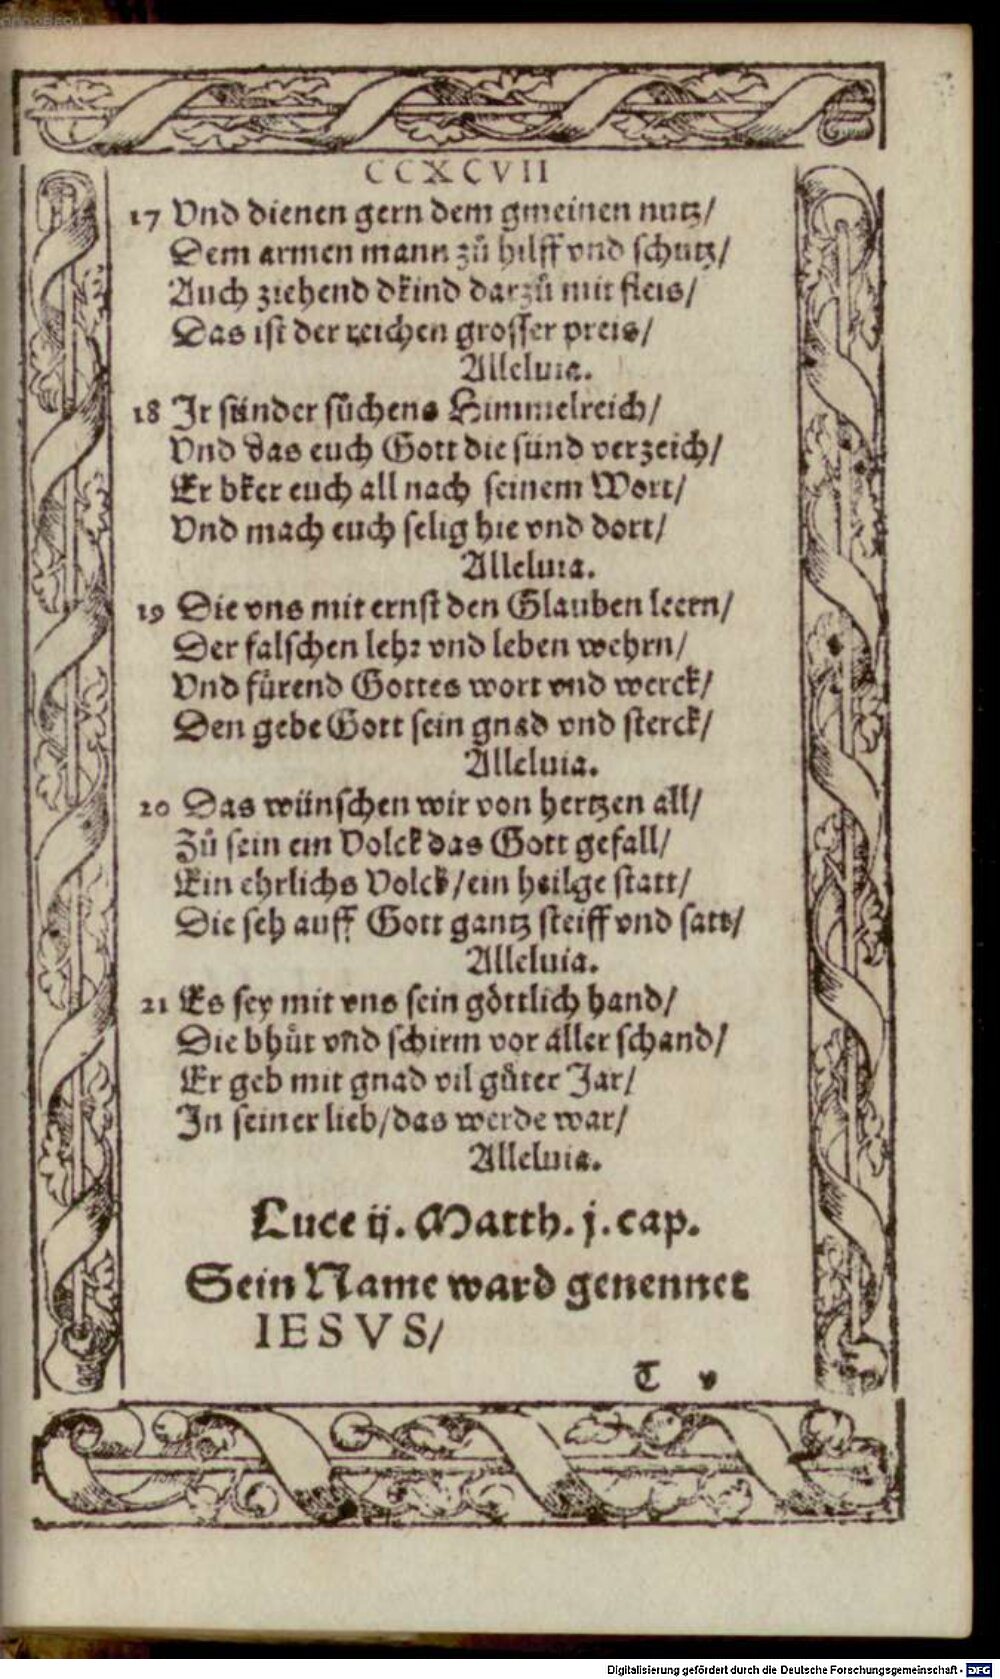 00025694
CCXCVII
17 Vnd dienen gern dem gmeinen nutz/
Dem armen mann zů hilff vnd schutz/
Auch ziehend dkind darzů mit fleis/
Das ist der reichen grosser preis/
Alleluia.
18 Ir sünder sůchens Himmelreich/
Vnd das euch Gott die sünd verzeich/
Er bker euch all nach seinem Wort/
Vnd mach euch selig hie vnd dort/
Alleluia.
19 Die vns mit ernst den Glauben leern/
Der falschen lehr vnd leben wehrn/
Vnd fürend Gottes wort vnd werck/
Den gebe Gott sein gnad vnd sterck/
Alleluia.
20 Das wünschen wir von hertzen all/
Zů sein ein Volck das Gott gefall/
Ein ehrlichs Volck/ein heilge statt/
Die seh auff Gott gantz steiff vnd satt/
Alleluia.
21 Es sey mit vns sein göttlich hand/
Die bhüt vñd schirm vor aller schand/
Er geb mit gnad vil gůter Jar/
In seiner lieb/das werde war/
Alleluia.
Luce ij. Matth. j. cap.
Sein Name ward genennet
IESVS/
T v
Digitalisierung gefördert durch die Deutsche Forschungsgemeinschaft - DFG